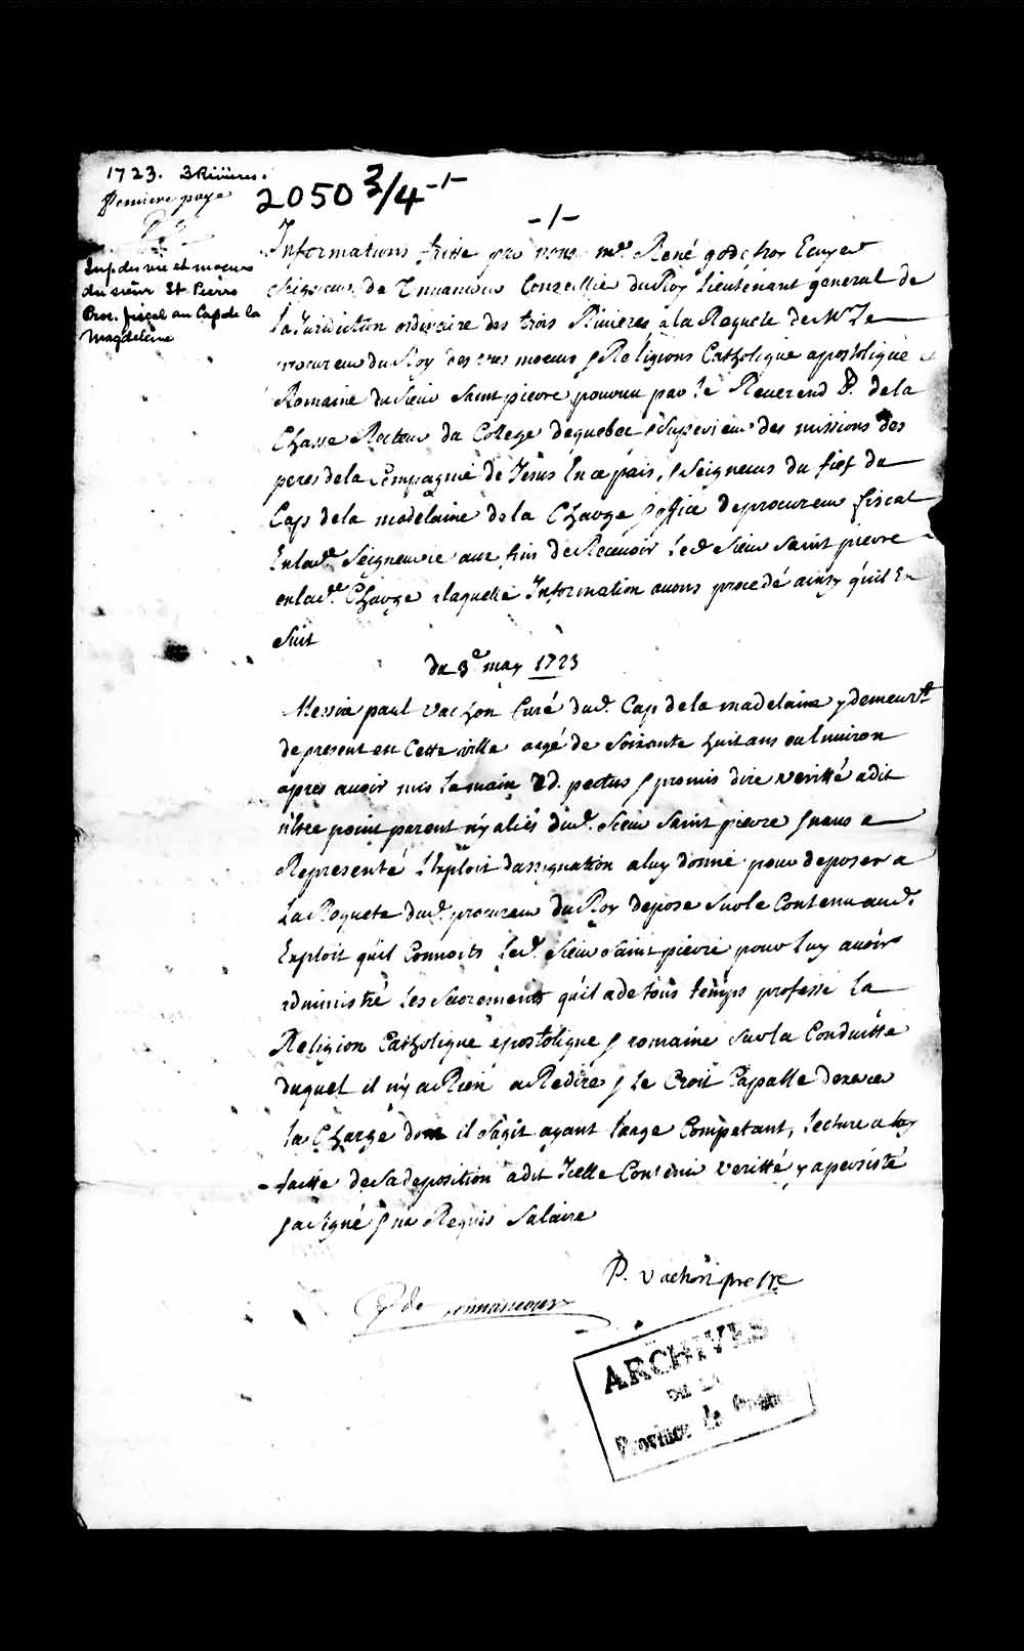 1723. 3 Rivières.
Première page
2050 3/4 -1-
-1-
Inf. des vie et moeurs
du sieur St Pierre
Proc. fiscal au Cap de la
Magdeleine
Informations faitte par nous mre René godefroy Ecuyer
Seigneur de Tonnancour Conseiller du Roy Lieutenant general de
La Jurisdiction ordinaire des trois Rivieres a la Requete de Mr Le
procureur du Roy des vies moeurs & Religions Catholique apostolique &
Romaine du Sieur Saint pierre pourvu par le Reuerend P. de la
Chasse Recteur du College de quebec & Superieur des missions des
peres de la Compagnie de Jesus En ce païs, & Seigneurs du fief du
Cap de la madelaine de la Charge & office de procureur fiscal
En lad. Seigneurie aux fins de Receuoir led. Sieur Saint pierre
en lad. Charge a laquelle Information auons procedé ainsy qu'il En
Suit
du 3e may 1723
Messire paul vachon Curé dud. Cap de la madelaine y demeurt
de present en Cette ville aagé de Soixante huit ans ou Enuiron
apres auoir mis la main ad. pectus & promis dire verité a dit
n'estre point parent n'y aliés dud. Sieur Saint pierre & nous a
Representé l'Exploit dassignation a luy donné pour deposer a
La Requete dud. procureur du Roy depose Sur le Contenu aud.
Exploit qu'il Connoits led. Sieur Saint pierre pour luy auoir
administré les Sacrements qu'il a de tous temps professé la
Religion Catholique apostolique & romaine Sur la Conduitte
duquel il n'y a Rien a Redire & le Croit Capable dexercer
la Charge dont il Sagit ayant lage Competant, lecture a luy
faitte de Sa deposition a dit Icelle Contenir veritté y a persisté
& a Signé & n'a Requis Salaire
P. vachon prestre
R g de Tonnancour
ARCHIVES
DE LA
Province de Québec